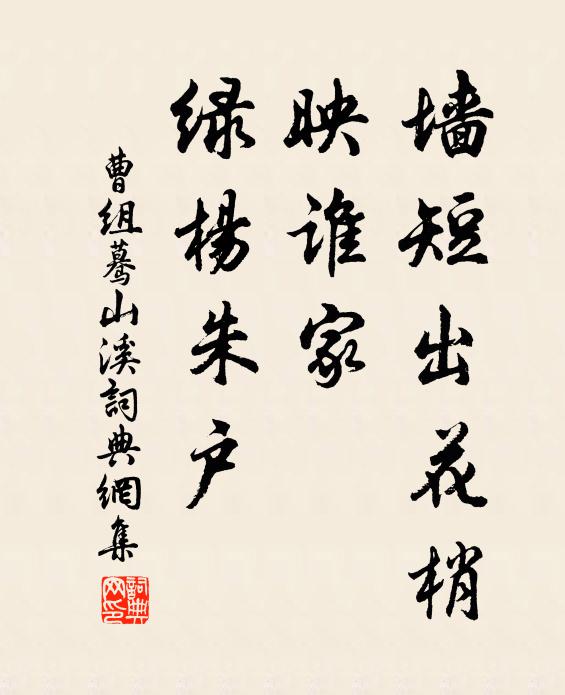 墙短出花梢
映谁家
绿杨朱户
曹组蓦山溪詞典網集
詞典网印